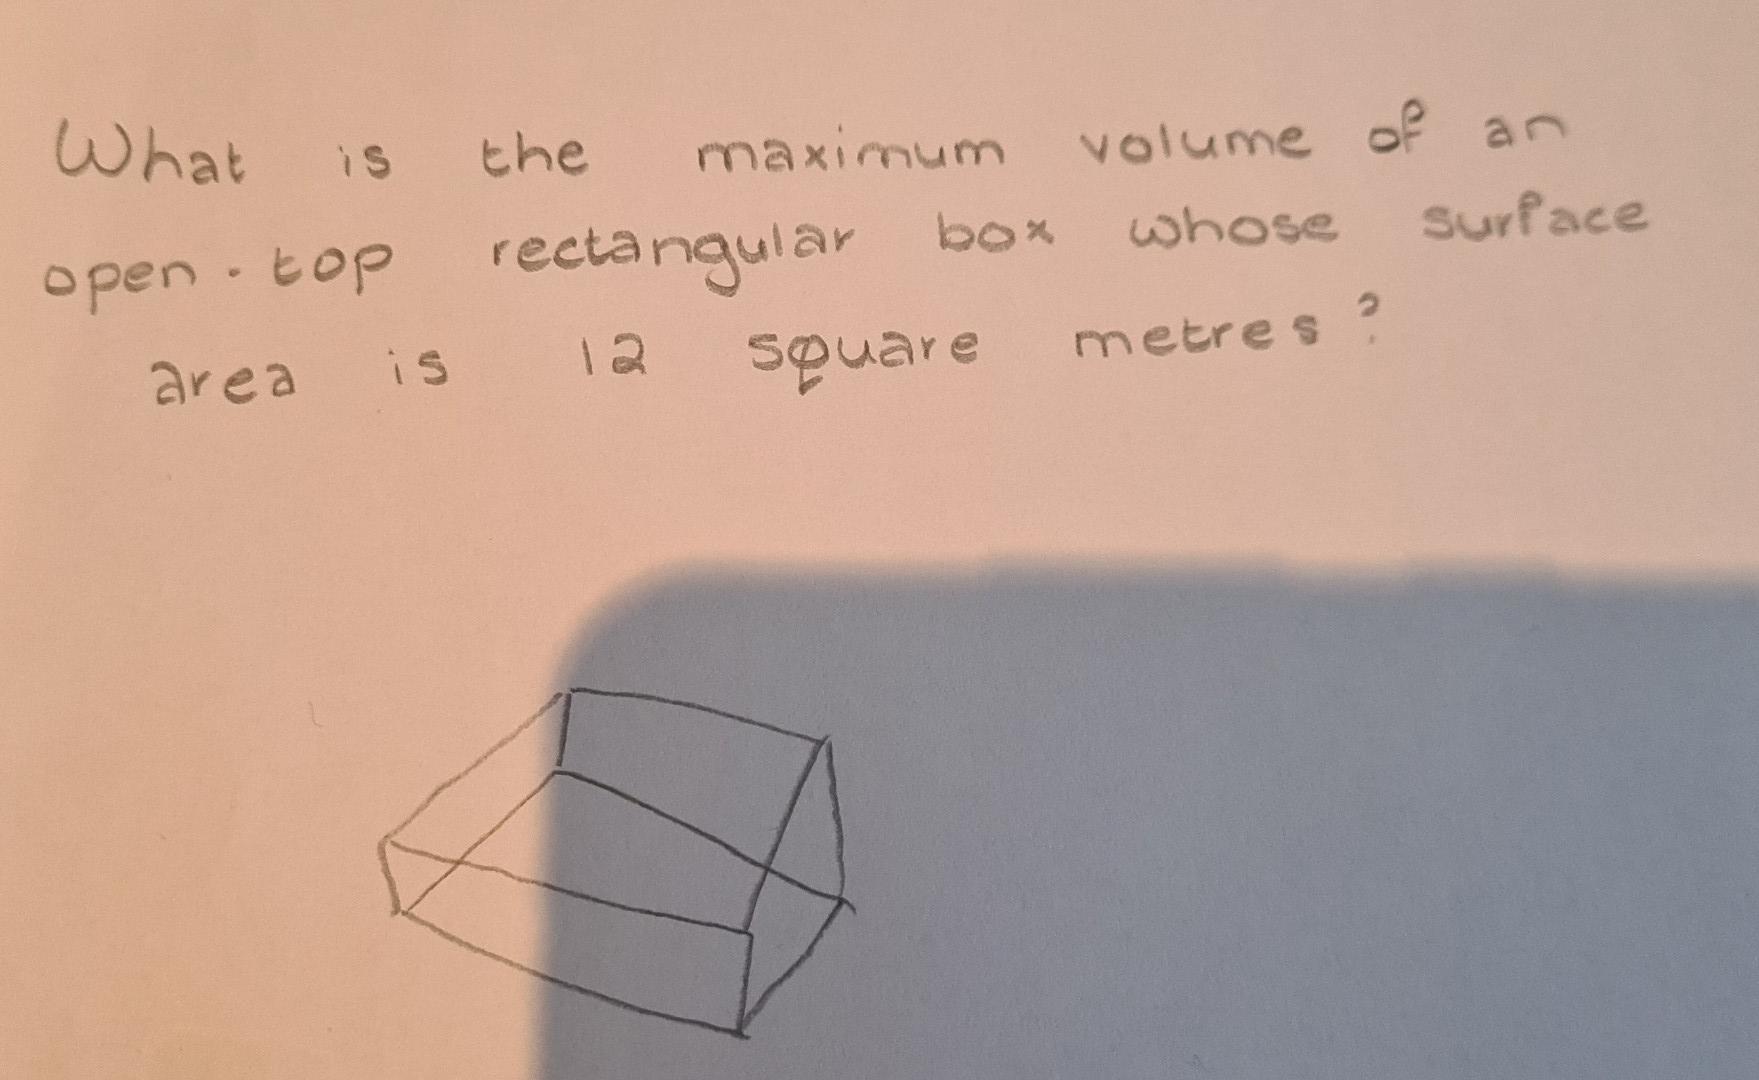 What is the maximum volume of an
open-top rectangular box whose surface
area is 12 square metres?